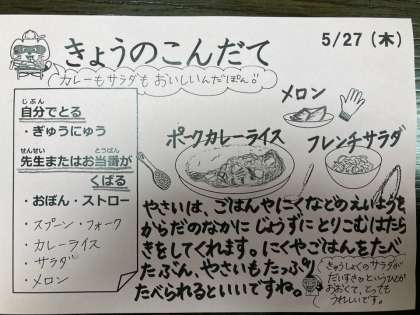 きょうのこんだて
5/27（木）
カレーもサラダも おいしいんだぽん!!
じぶん
自分でとる
・ぎゅうにゅう
せんせい とうばん
先生またはお当番が
くばる
・おぼん・ストロー
・スプーン・フォーク
・カレーライス
・サラダ
・メロン
メロン
ポークカレーライス
フレンチサラダ
やさいは、ごはんやにくなどのえいようを
からだのなかに じょうずに とりこむはたら
きをしてくれます。にくやごはんをたべ
たぶん、やさいもたっぷり
たべられるといいですね。
きゅうしょくのサラダが
だいすきというひとが
おおくて、とっても
うれしいです。